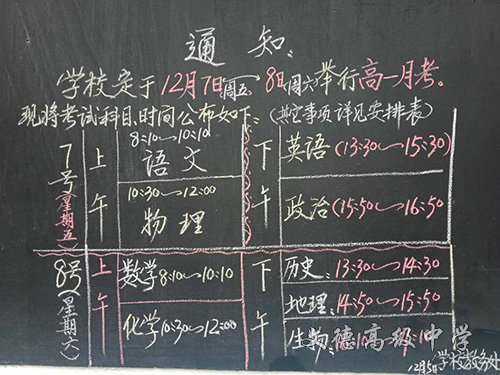 通知：
学校定于12月7日(周五)→8日(周六)举行高一月考。
现将考试科目、时间公布如下：(其它事项详见安排表)
7号(星期五)
上午
8:10~10:10
语文
10:30~12:00
物理
下午
英语(13:30~15:30)
政治(15:50~16:50)
8号(星期六)
上午
数学8:10~10:10
化学10:30~12:00
下午
历史：13:30~14:30
地理：14:50~15:50
生物
德高级中学
学校教务处
12月5日